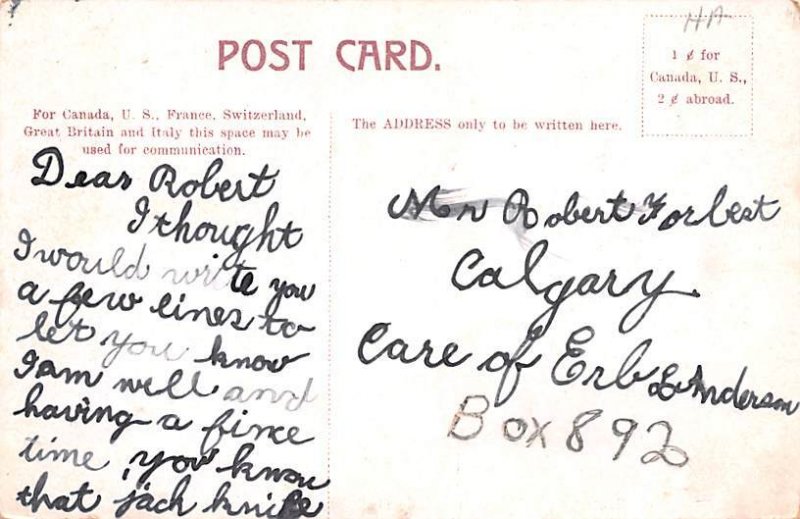 HA
POST CARD.
1 ¢ for
Canada, U. S.,
2 ¢ abroad.
For Canada, U. S., France, Switzerland,
Great Britain and Italy this space may be
used for communication.
The ADDRESS only to be written here.
Dear Robert
I thought
I would write you
a few lines to
let you know
I am well and
having a fince
time, you know
that jack knife
Mr Robert Forbest
Calgary
Care of Erb & Anderson
Box 892